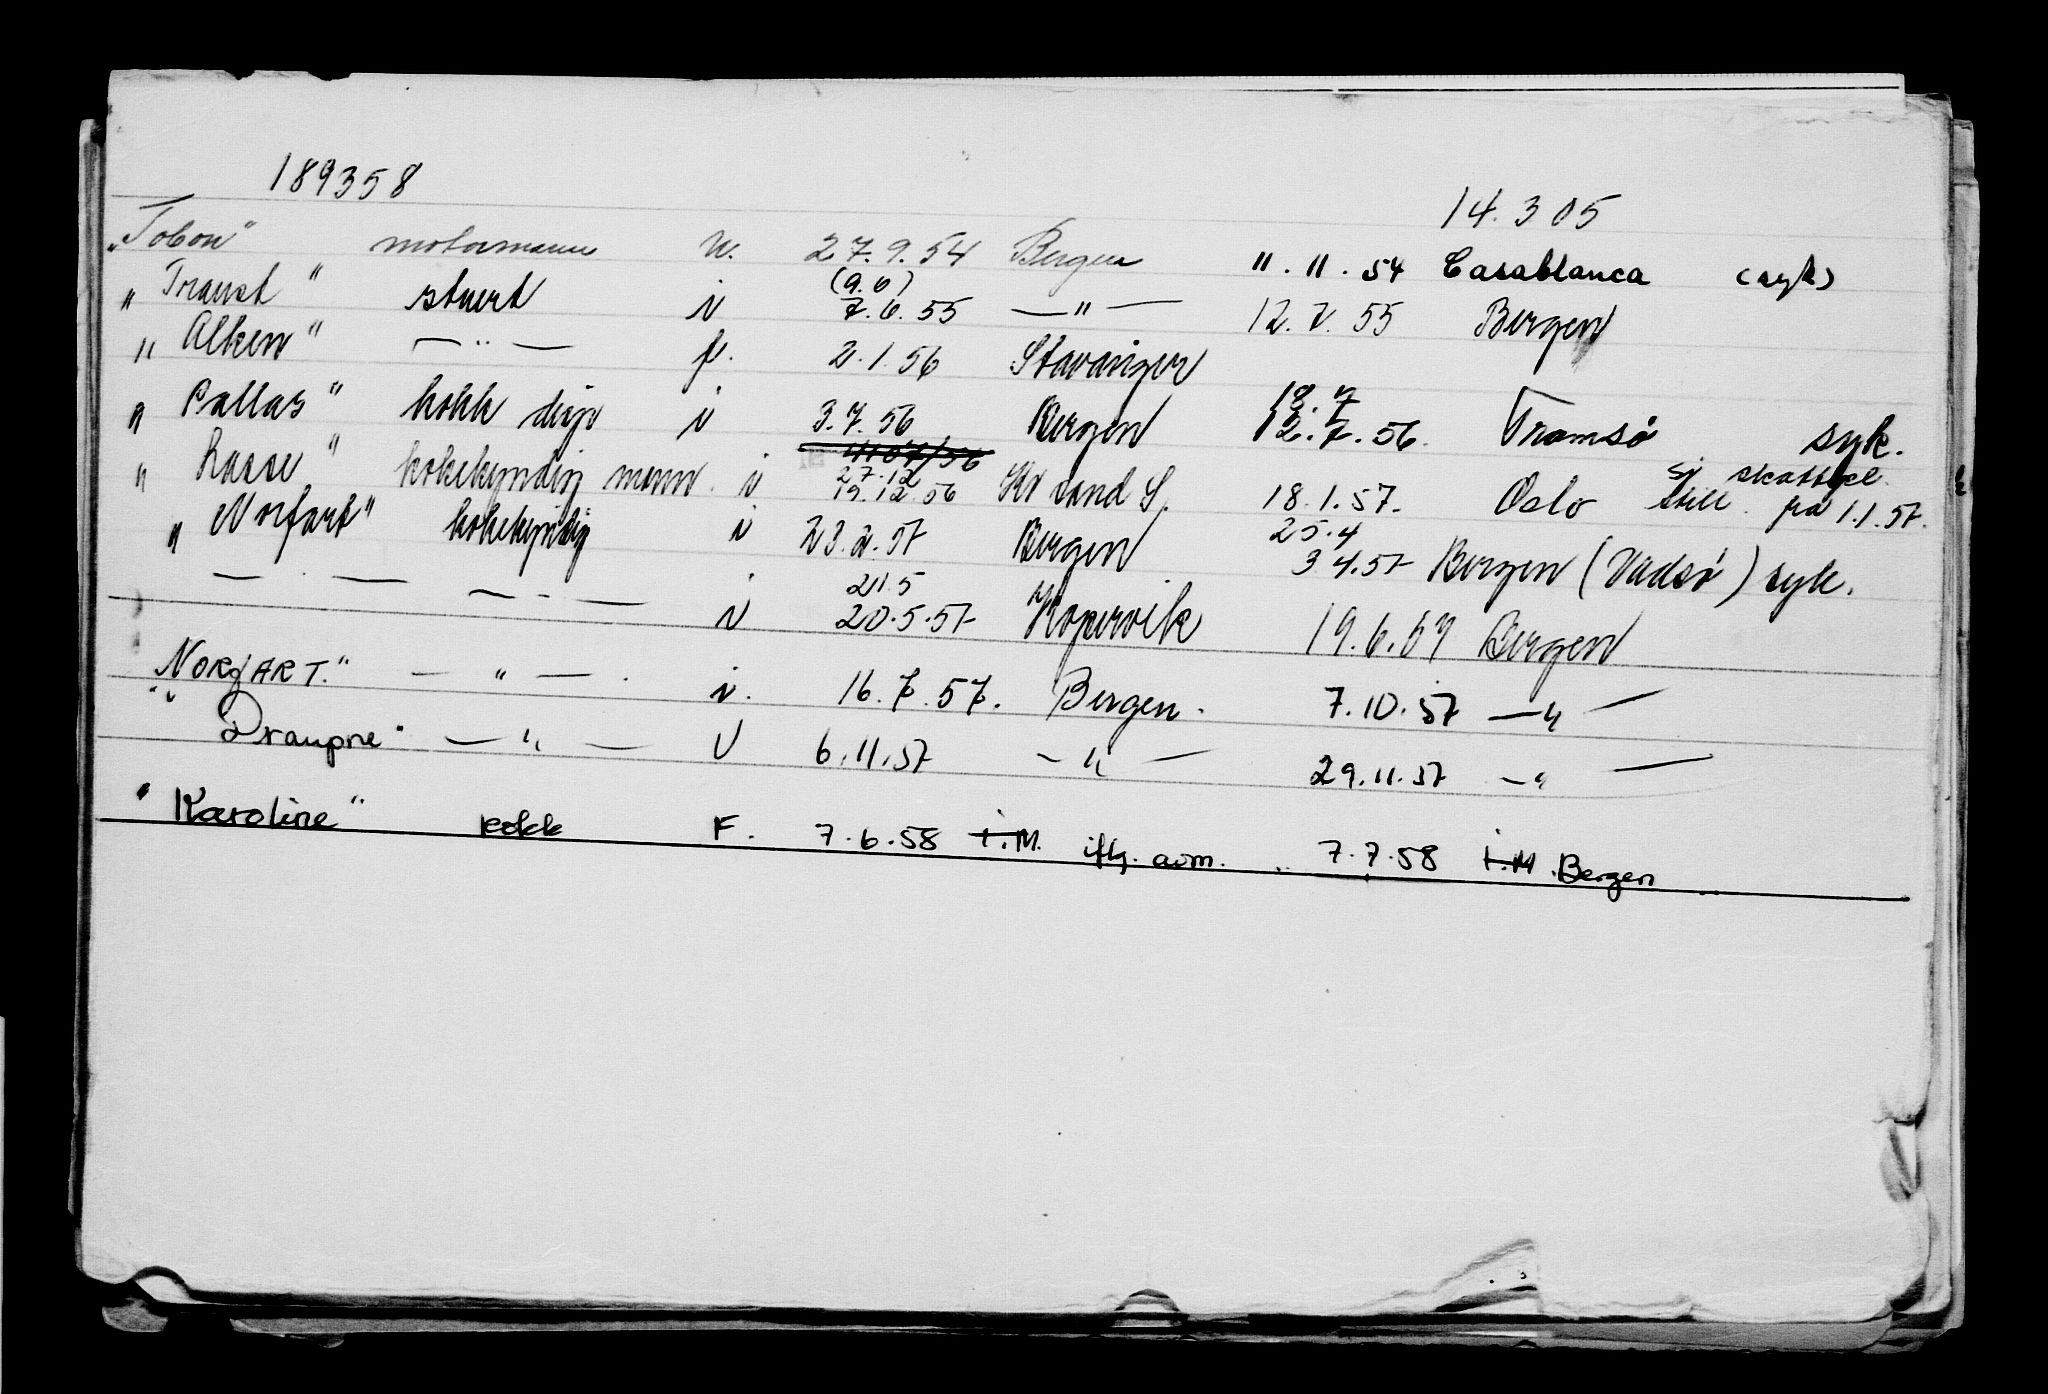 189358
14.305
"Tobon" motormann u. 27.9.54 Bergen 11.11.54 Casablanca (syk)
(9.6)
"Transt" stuert i 7.6.55 —"— 12.7.55 Bergen
"Alken" —"— f. 2.1.56 Stavanger
18.7
"Pallas" kokk disp i 3.7.56 Bergen 12.7.56. Tromsø syk.
27.12
"Lasse" kokekyndig mann. i 19.12.56 Kr sand S. 18.1.57. Oslo Si skattekl. still. fra 1.1.57.
25.4
"Norfart" kokekyndig i 23.2.57 Bergen 3 4.57 Bergen (Vadsø) syk.
21.5
—"— —"— i 20.5.57 Kopervik 19.6.57 Bergen
"NORFART." —"—. i. 16.7.57. Bergen. 7.10.57 —"—
"Draupne" —"— U 6.11.57 —"— 29.11.57 —"—
"Karoline" kokk F. 7.6.58 i.M. iflg. avm. 7.7.58 i.M. Bergen